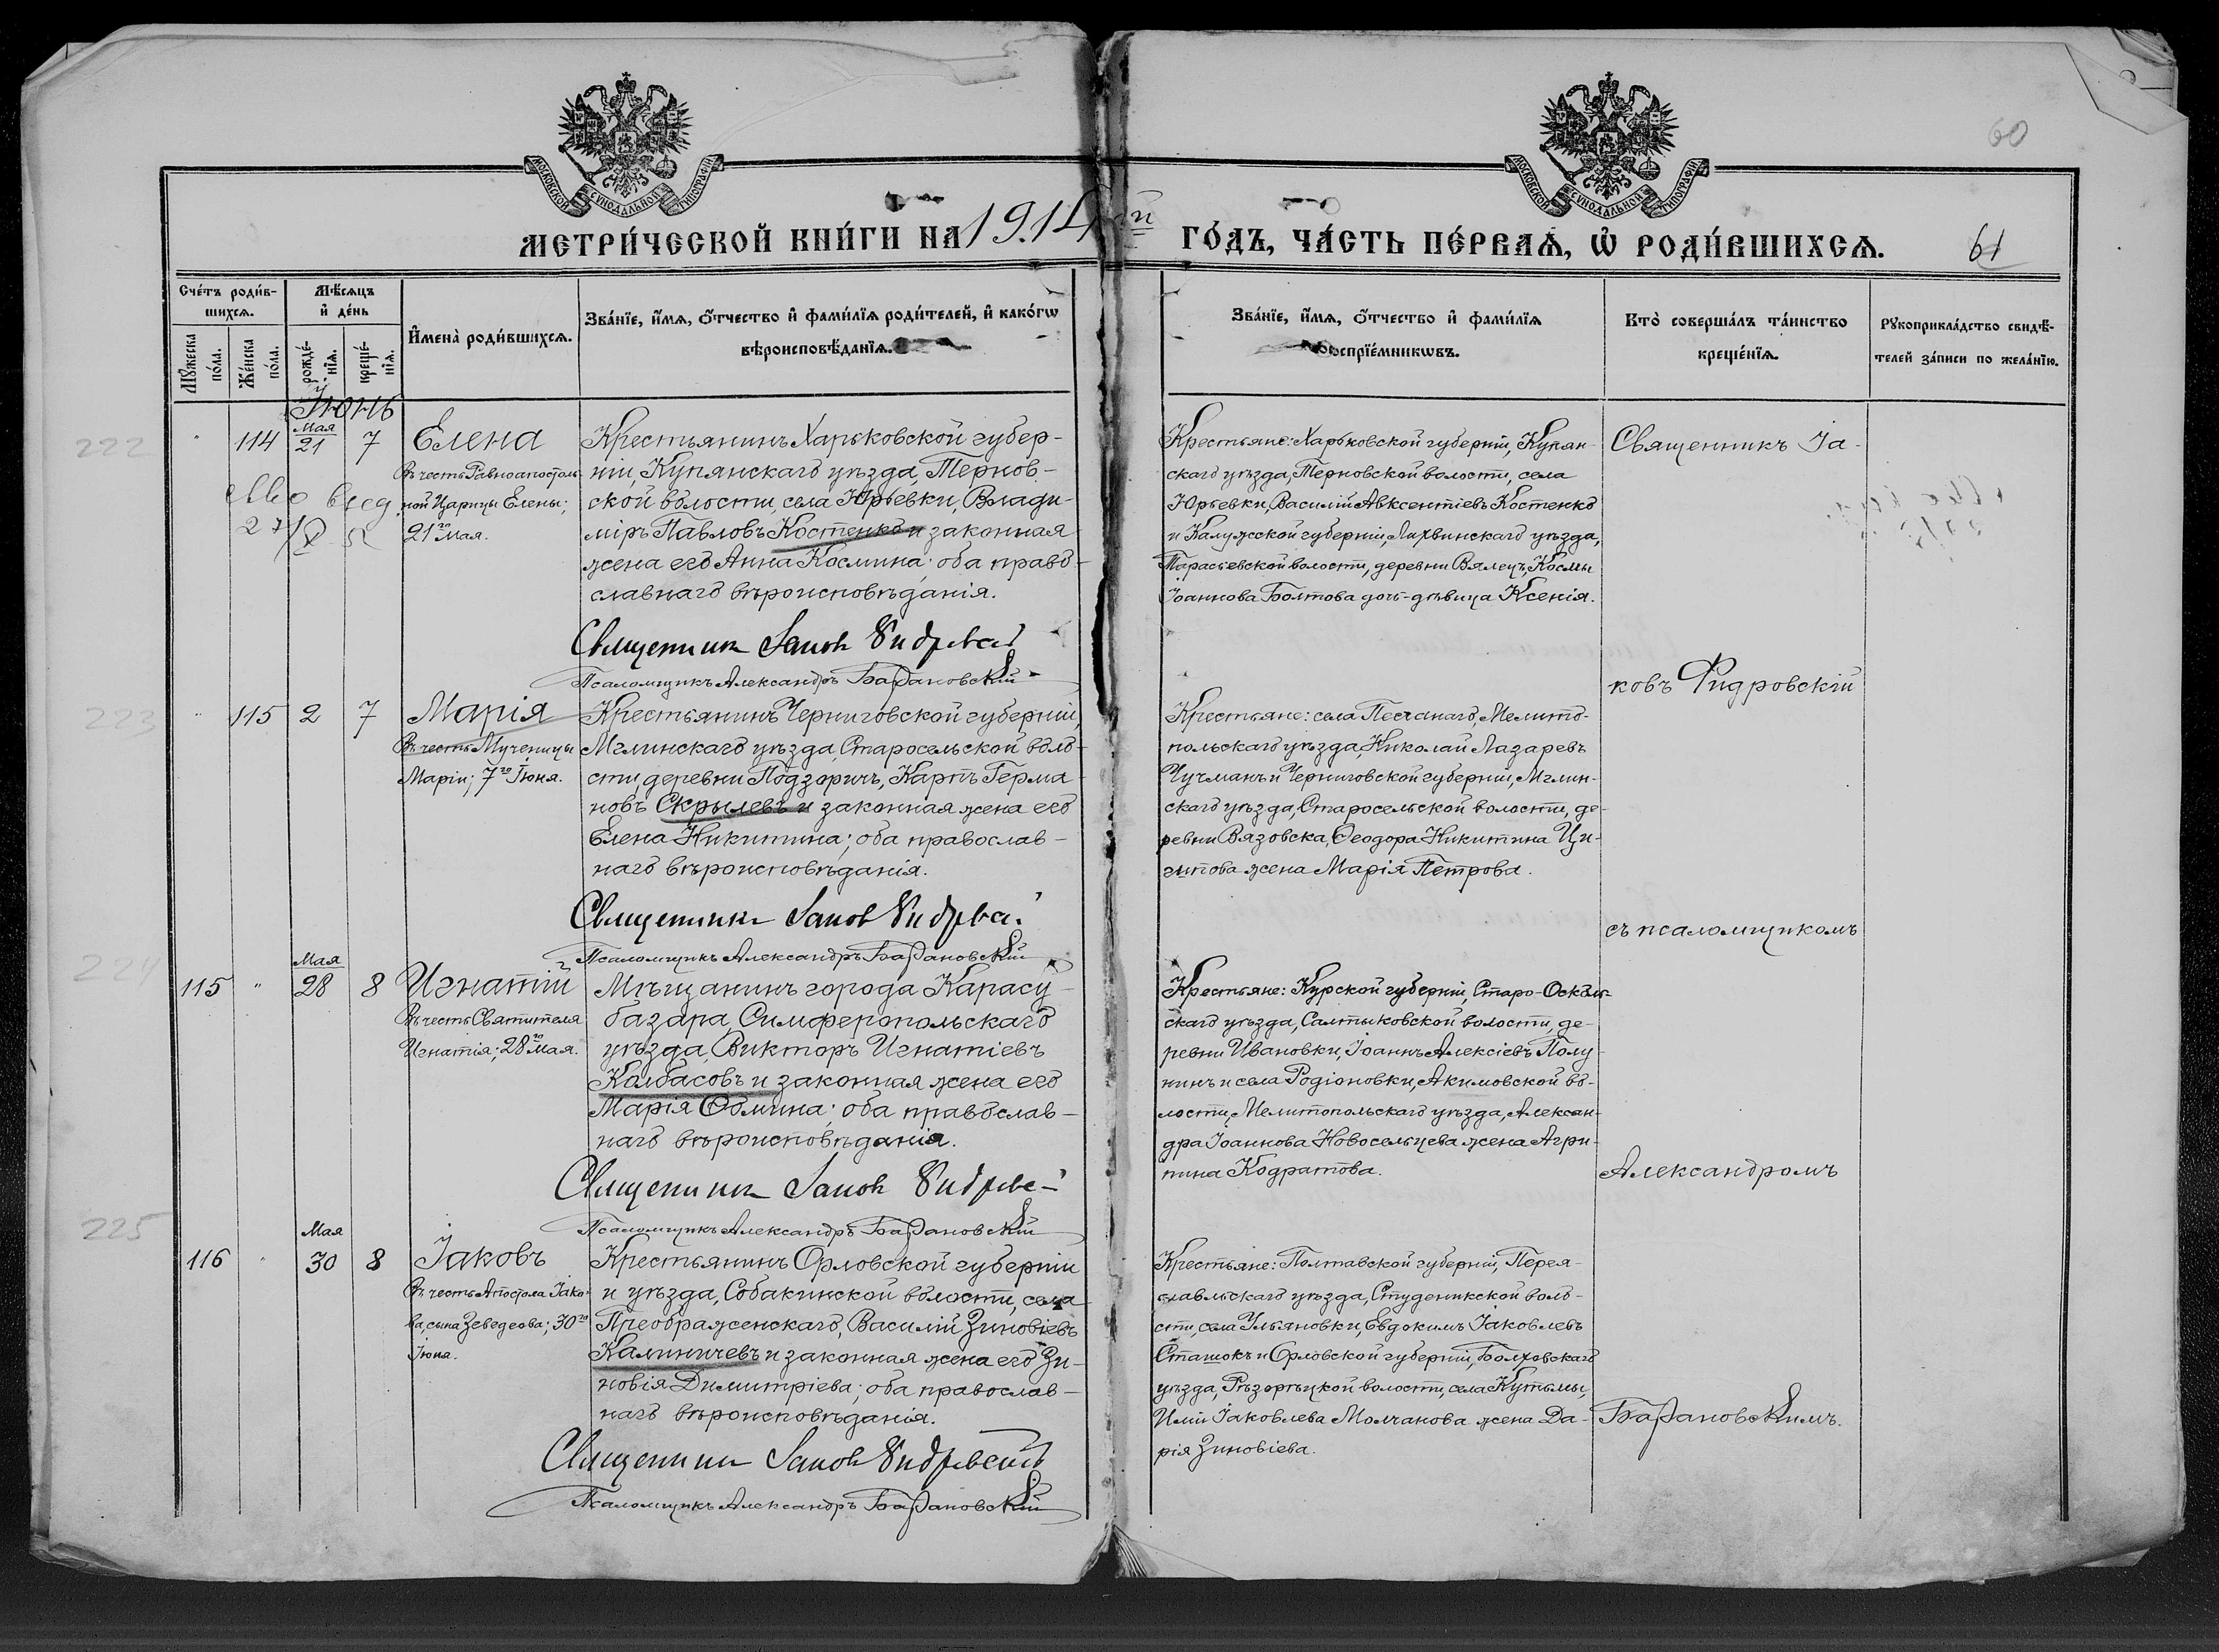 МОСКОВСКОЙ СѴНОДАЛЬНОЙ ТИПОГРАФІИ
МОСКОВСКОЙ СѴНОДАЛЬНОЙ ТИПОГРАФІИ
60
МЕТРИ́ЧЕСКОЙ КНИ́ГИ НА 1914й ГО́ДЪ, ЧА́СТЬ ПЕ́РВАѦ, Ѡ҆ РОДИ́ВШИХСѦ.
61
Сче́тъ роди́в-
шихсѧ.
Мꙋжеска по́ла.
Же́нска по́ла.
Мѣ́сѧцъ
и҆ де́нь
рожде́-нїѧ.
креще́-нїѧ.
И҆мена̀ роди́вшихсѧ.
Зва́нїе, и҆́мѧ, ѻ҆́тчество и҆ фами́лїѧ роди́телей, и҆ како́гѡ
вѣроисповѣ́данїѧ.
Зва́нїе, и҆́мѧ, ѻ҆́тчество и҆ фами́лїѧ
воспрїе́мникѡвъ.
Кто̀ соверша́лъ та́инство
креще́нїѧ.
Рꙋкоприкла́дство свидѣ́-
телей за́писи по жела́нїю.
Іюнь
222
" 114 Мая 21 7
Елена
Въ честь Равноапостоль-
ной Царицы Елены;
21го Мая.
Крестьянинъ Харьковской губер-
ніи, Купянскаго уѣзда, Тернов-
ской волости, села Юрьевки, Влади-
міръ Павловъ Костенко и законная
жена его Анна Космина; оба право-
славнаго вѣроисповѣданія.
Священникъ Іаковъ Фидровскій
Псаломщикъ Александръ Барановскій
Крестьяне: Харьковской губерніи, Купян-
скаго уѣзда, Терновской волости, села
Юрьевки, Василій Авксентіевъ Костенко
и Калужской губерніи, Лихвинскаго уѣзда,
Тарасьевской волости, деревни Вялецъ, Космы
Іоаннова Болтова дочь-дѣвица Ксенія.
Священникъ Іа-
ковъ Фидровскій
223
" 115 2 7
Марія
Въ честь Мученицы
Маріи; 7го Іюня.
Крестьянинъ Черниговской губерніи,
Мглинскаго уѣзда, Старосельской воло-
сти, деревни Подзоричъ, Карпъ Герма-
новъ Скрылевъ и законная жена его
Елена Никитина; оба православ-
наго вѣроисповѣданія.
Священникъ Іаковъ Фидровскій
Псаломщикъ Александръ Барановскій
Крестьяне: села Песчанаго, Мелито-
польскаго уѣзда, Николай Лазаревъ
Чучманъ и Черниговской губерніи, Мглин-
скаго уѣзда, Старосельской волости, де-
ревни Вязовска, Ѳеодора Никитина Ци-
гипова жена Марія Петрова.
съ псаломщикомъ
224
115 " Мая 28 8
Игнатій
Въ честь Святителя
Игнатія; 28го Мая.
Мѣщанинъ города Карасу-
базара, Симферопольскаго
уѣзда, Викторъ Игнатіевъ
Колбасовъ и законная жена его
Марія Ѳомина; оба православ-
наго вѣроисповѣданія.
Священникъ Іаковъ Фидровскій
Псаломщикъ Александръ Барановскій
Крестьяне: Курской губерніи, Старо-Осколь-
скаго уѣзда, Салтыковской волости, де-
ревни Ивановки, Іоаннъ Алексіевъ Полу-
нинъ и села Родіоновки, Акимовской во-
лости, Мелитопольскаго уѣзда, Алексан-
дра Іоаннова Новосельцева жена Агри-
пина Кодратова.
Александромъ
225
116 " Мая 30 8
Іаковъ
Въ честь Апостола Іако-
ва, сына Зеведеова; 30го
Іюня.
Крестьянинъ Орловской губерніи
и уѣзда, Собакинской волости, села
Преображенскаго, Василій Зиновіевъ
Калиничевъ и законная жена его Зи-
новія Димитріева; оба православ-
наго вѣроисповѣданія.
Священникъ Іаковъ Фидровскій
Псаломщикъ Александръ Барановскій
Крестьяне: Полтавской губерніи, Перея-
славльскаго уѣзда, Студеникской воло-
сти, села Ульяновки, Евдокимъ Іаковлевъ
Сташокъ и Орловской губерніи, Болховскаго
уѣзда, Рѣзорѣцкой волости, села Кутьмы,
Иліи Іаковлева Молчанова жена Да-
рія Зиновіева.
Барановскимъ.